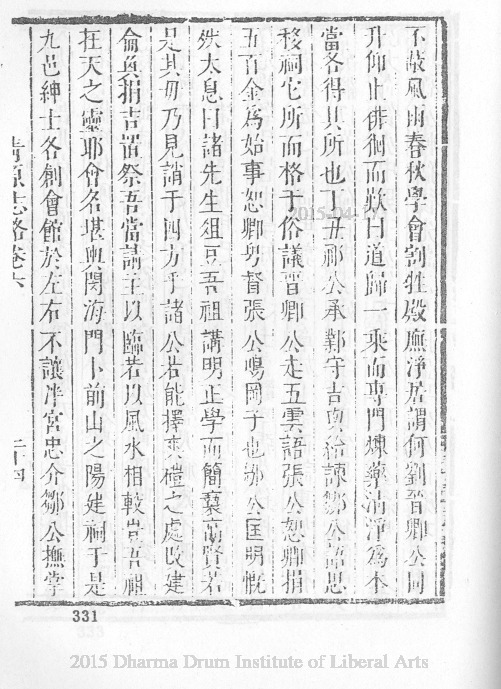 不蔽風雨春秋學會割牲殿廡淨居謂何劉晉卿公同
升仰止徘徊而歎曰道歸一乘而專門煉藥清淨爲本
當各得其所也丁丑祁公承鄴守吉貞給諫鄒公語思
移祠它所而格于俗議晉卿公走五雲語張公恕卿捐
五百金爲始事恕卿男督張公鳴岡子也鄒公匡明慨
然太息曰諸先生俎豆吾祖講明正學而簡褻高賢若
是其毋乃見誚于四方乎諸公若能擇爽塏之處改建
侖奐捐吉蠲祭吾當請主以臨若以風水相較豈吾祖
在天之靈耶會名堪輿閔海門卜前山之陽建祠于是
九邑紳士各創會館於左右不讓泮宮忠介鄒公撫掌
青原志略卷六 二十四
331
2015-04-17
2015 Dharma Drum Institute of Liberal Arts